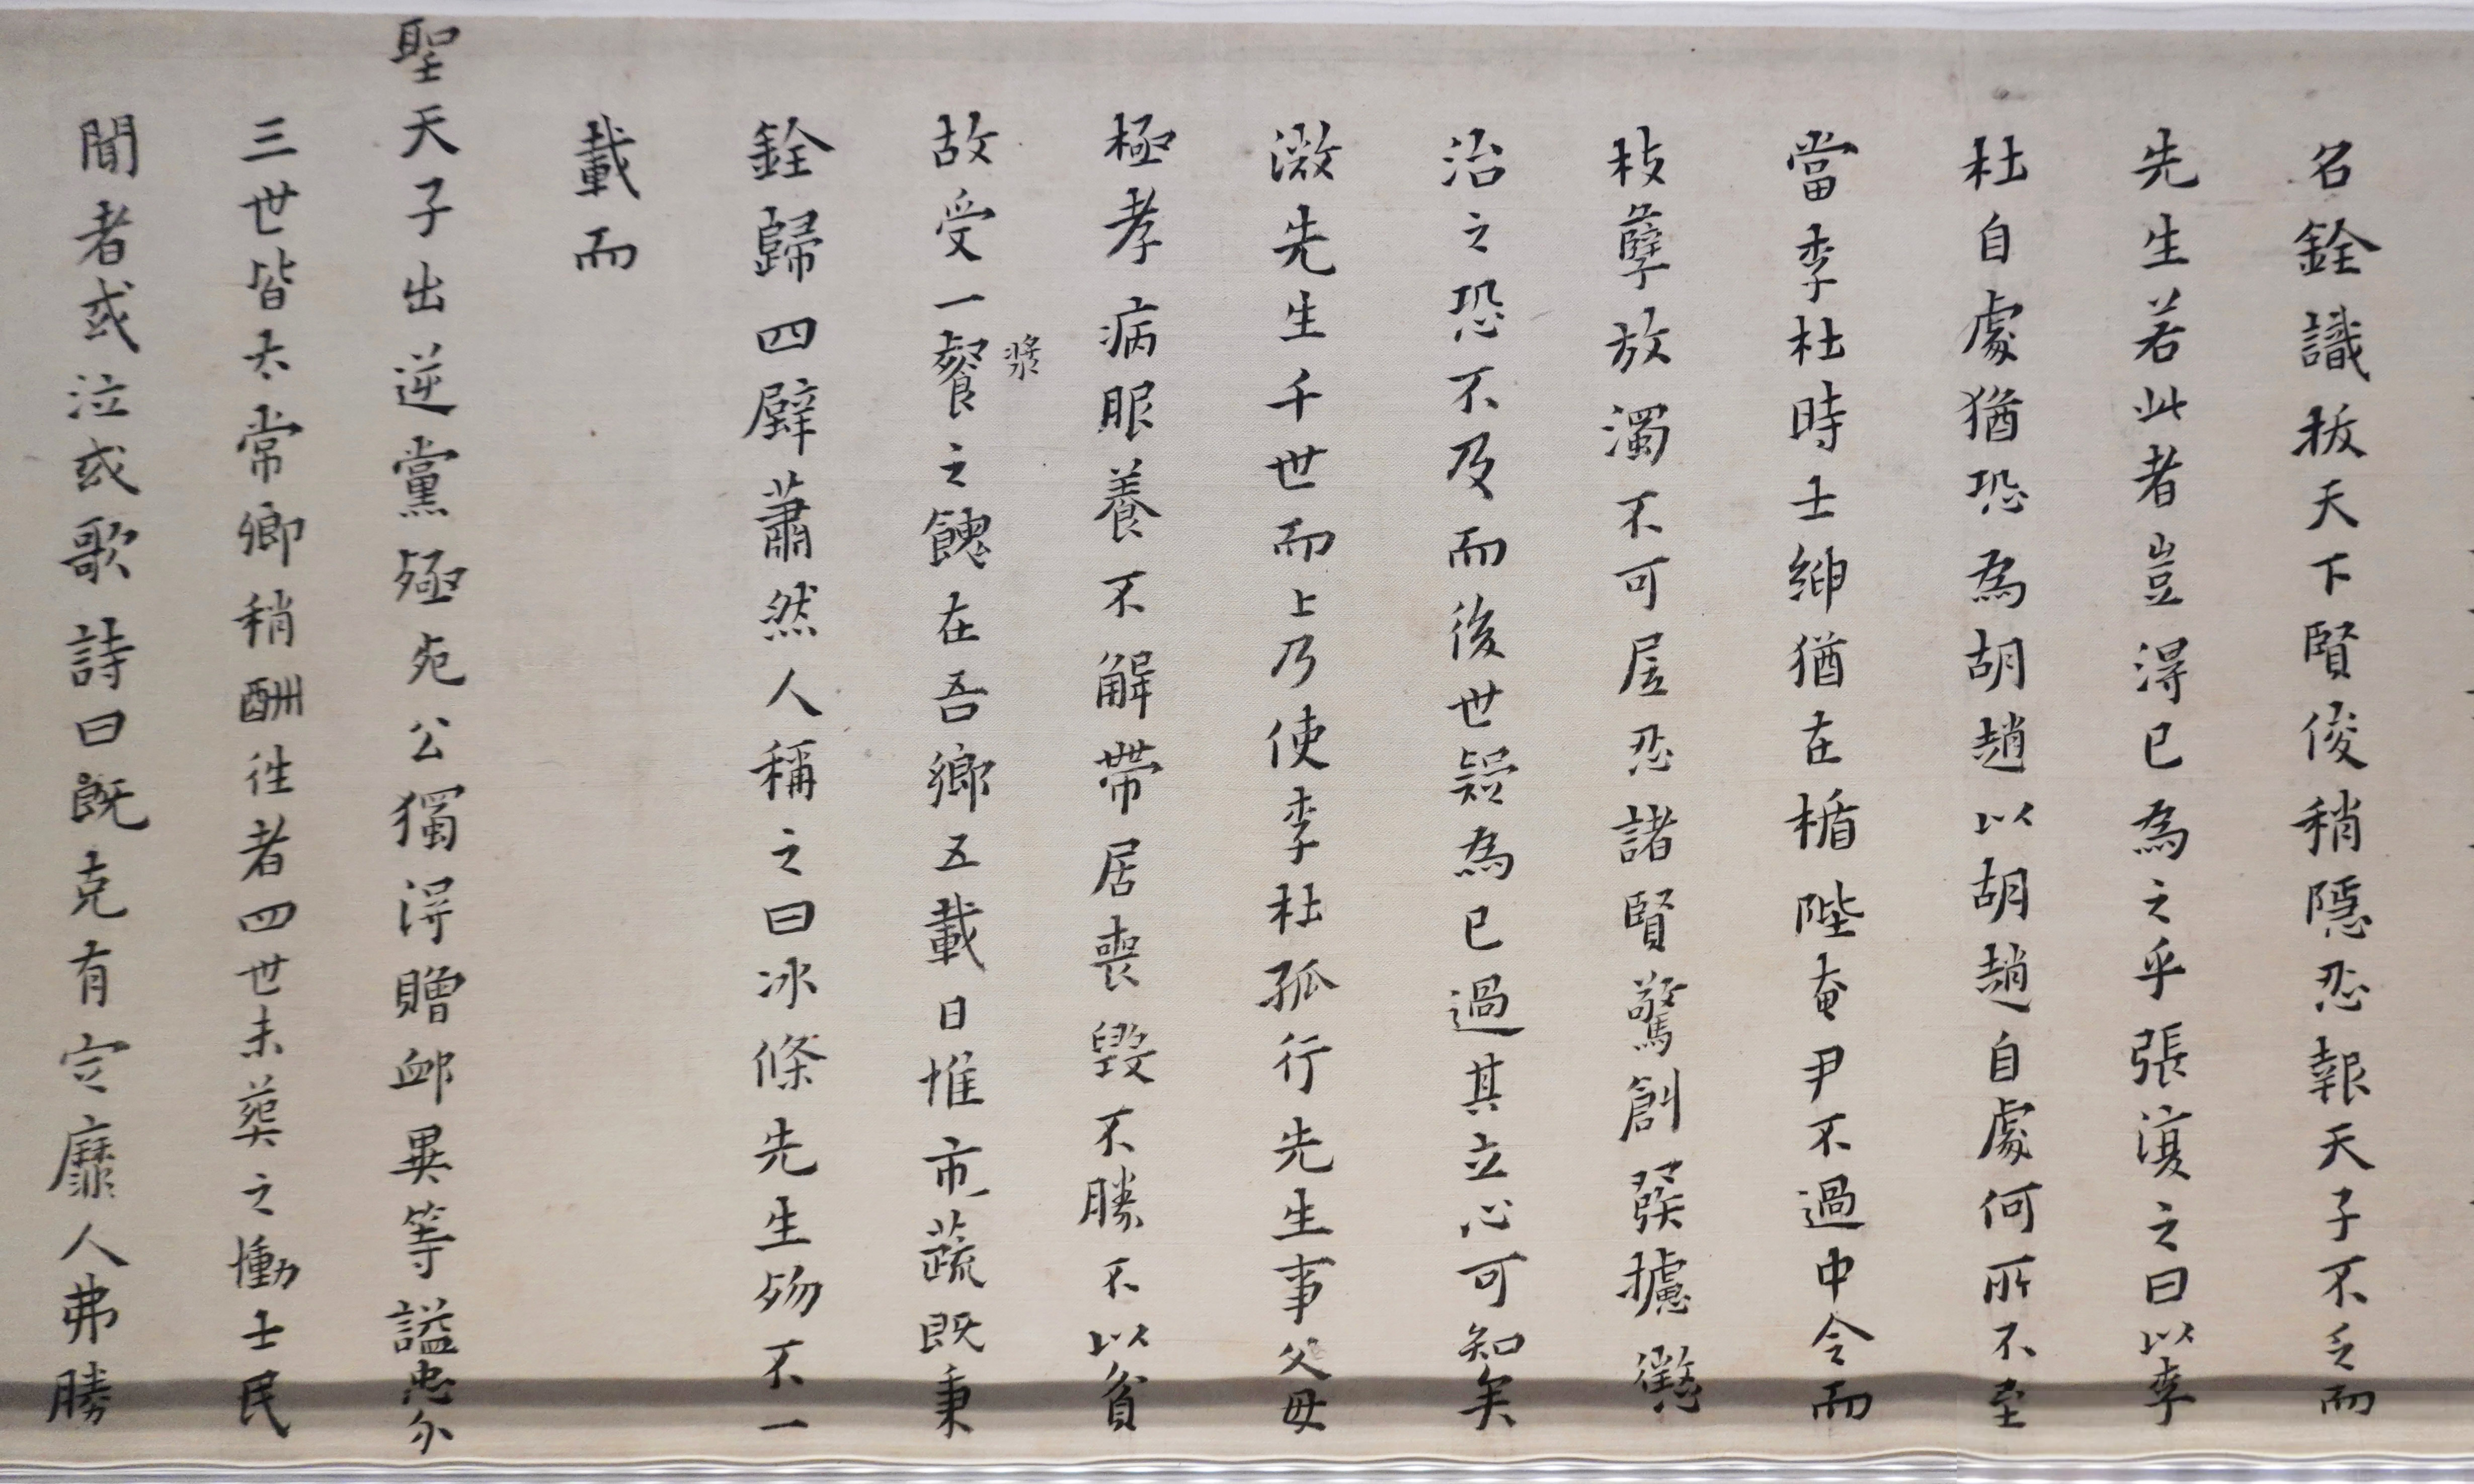 名銓識拔天下賢俊稍隱忍報天子不乏而
先生若此者豈得已為之乎張溥之曰以李
杜自處猶恐為胡趙以胡趙自處何所不至
當李杜時士紳猶在楯陛奄尹不過中令而
枝孽放濁不可㞐忍諸賢驚創彂攄懲
治之恐不及而後世疑為已過其立心可知矣
激先生千世而上乃使李杜孤行先生事父母
極孝病眼養不解帶居喪毀不勝不以貧
故受一餐漿之餽在吾鄉五載日惟市蔬既秉
銓歸四壁蕭然人稱之曰冰條先生歿不一
載而
聖天子出逆黨殛死公獨得贈卹異等諡忠介
三世皆太常卿稍酬往者四世未葬之慟士民
聞者或泣或歌詩曰既克有定靡人弗勝